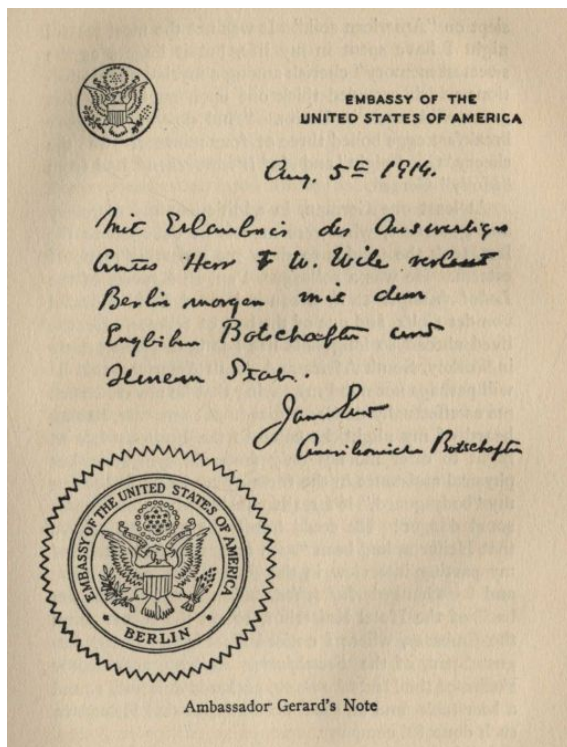 EMBASSY OF THE
UNITED STATES OF AMERICA
Aug. 5th 1914.
Mit Erlaubnis des Auswertigs
Amtes Herr F W. Wile verlesst
Berlin morgen mit dem
Botschafter und
Seinem Stab.
Amerikanischer Botschafter
EMBASSY OF THE UNITED STATES OF AMERICA
BERLIN
Ambassador Gerard's Note